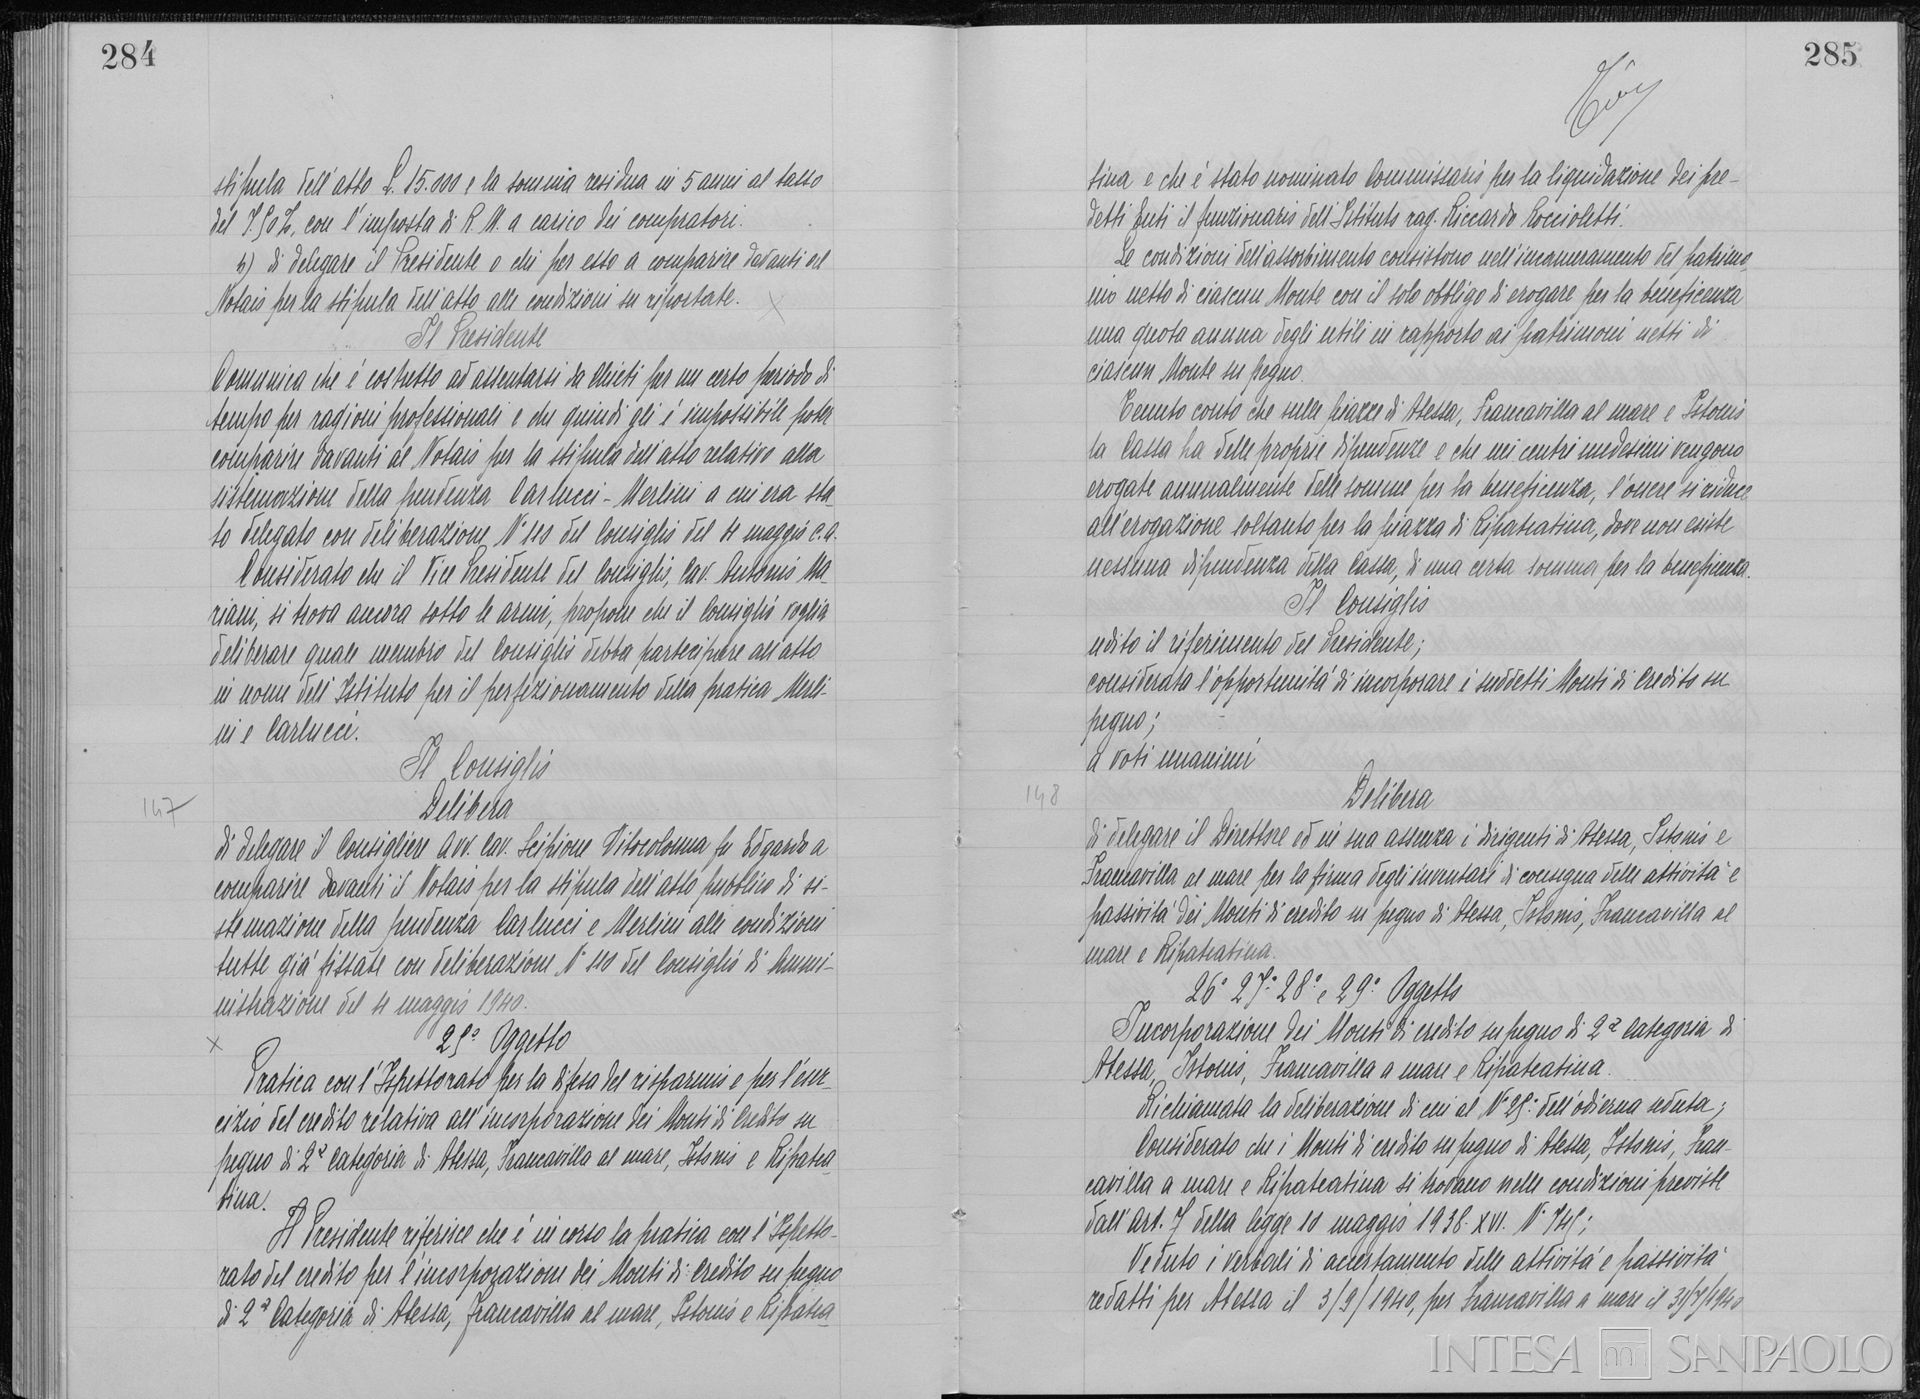 284
stipula dell'atto L. 15.000 e la somma residua in 5 anni al tasso
del 7.50%, con l'imposta di R. M. a carico dei compratori.
b) di delegare il Presidente o chi per esso a comparire davanti al
Notaio per la stipula dell'atto alle condizioni su riportate.
Il Presidente
Comunica che è costretto ad assentarsi da Chieti per un certo periodo di
tempo per ragioni professionali e che quindi gli è impossibile poter
comparire davanti al Notaio per la stipula dell'atto relativo alla
sistemazione della pendenza Carlucci - Merlini a cui era sta-
to delegato con deliberazione N° 110 del Consiglio del 4 maggio c.a.
Considerato che il Vice Presidente del Consiglio, Cav. Antonio Ma-
riani, si trova ancora sotto le armi, propone che il Consiglio voglia
deliberare quale membro del Consiglio debba partecipare all'atto
in nome dell'Istituto per il perfezionamento della pratica Merli-
ni e Carlucci.
Il Consiglio
Delibera
147
di delegare il Consigliere Avv. Cav. Scipione Vitocolonna fu Edgardo a
comparire davanti il Notaio per la stipula dell'atto pubblico di si-
stemazione della pendenza Carlucci e Merlini alle condizioni
tutte già fissate con deliberazione N° 110 del Consiglio di Ammi-
nistrazione del 4 maggio 1940.
25° Oggetto
Pratica con l'Ispettorato per la difesa del risparmio e per l'eser-
cizio del credito relativa all'incorporazione dei Monti di Credito su
pegno di 2ª Categoria di Atessa, Francavilla al mare, Istonio e Ripatea-
tina.
Il Presidente riferisce che è in corso la pratica con l'Ispetto-
rato del credito per l'incorporazione dei Monti di Credito su pegno
di 2ª Categoria di Atessa, Francavilla al mare, Istonio e Ripatea-
285
tina e che è stato nominato Commissario per la liquidazione dei pre-
detti Enti il funzionario dell'Istituto rag. Riccardo Coccioletti.
Le condizioni dell'assorbimento consistono nell'incameramento del patrimo-
nio netto di ciascun Monte con il solo obbligo di erogare per la beneficenza
una quota annua degli utili in rapporto ai patrimoni netti di
ciascun Monte su pegno.
Tenuto conto che sulle piazze di Atessa, Francavilla al mare e Istonio
la Cassa ha delle proprie dipendenze e che nei centri medesimi vengono
erogate annualmente delle somme per la beneficenza, l'onere si riduce
all'erogazione soltanto per la piazza di Ripateatina, dove non esiste
nessuna dipendenza della Cassa, di una certa somma per la beneficenza.
Il Consiglio
udito il riferimento del Presidente;
considerata l'opportunità di incorporare i suddetti Monti di Credito su
pegno;
a voti unanimi
148
Delibera
di delegare il Direttore ed in sua assenza i dirigenti di Atessa, Istonio e
Francavilla al mare per la firma degli inventari di consegna delle attività e
passività dei Monti di credito su pegno di Atessa, Istonio, Francavilla al
mare e Ripateatina.
26° 27° 28° e 29° Oggetto
Incorporazione dei Monti di credito su pegno di 2ª Categoria di
Atessa, Istonio, Francavilla a mare e Ripateatina.
Richiamata la deliberazione di cui al N° 25° dell'odierna seduta;
Considerato che i Monti di credito su pegno di Atessa, Istonio, Fran-
cavilla a mare e Ripateatina si trovano nelle condizioni previste
dall'Art. 7 della legge 10 maggio 1938-XVI. N° 745;
Veduto i verbali di accertamento delle attività e passività
redatti per Atessa il 3/9/1940, per Francavilla a mare il 31/7/1940
INTESA SANPAOLO